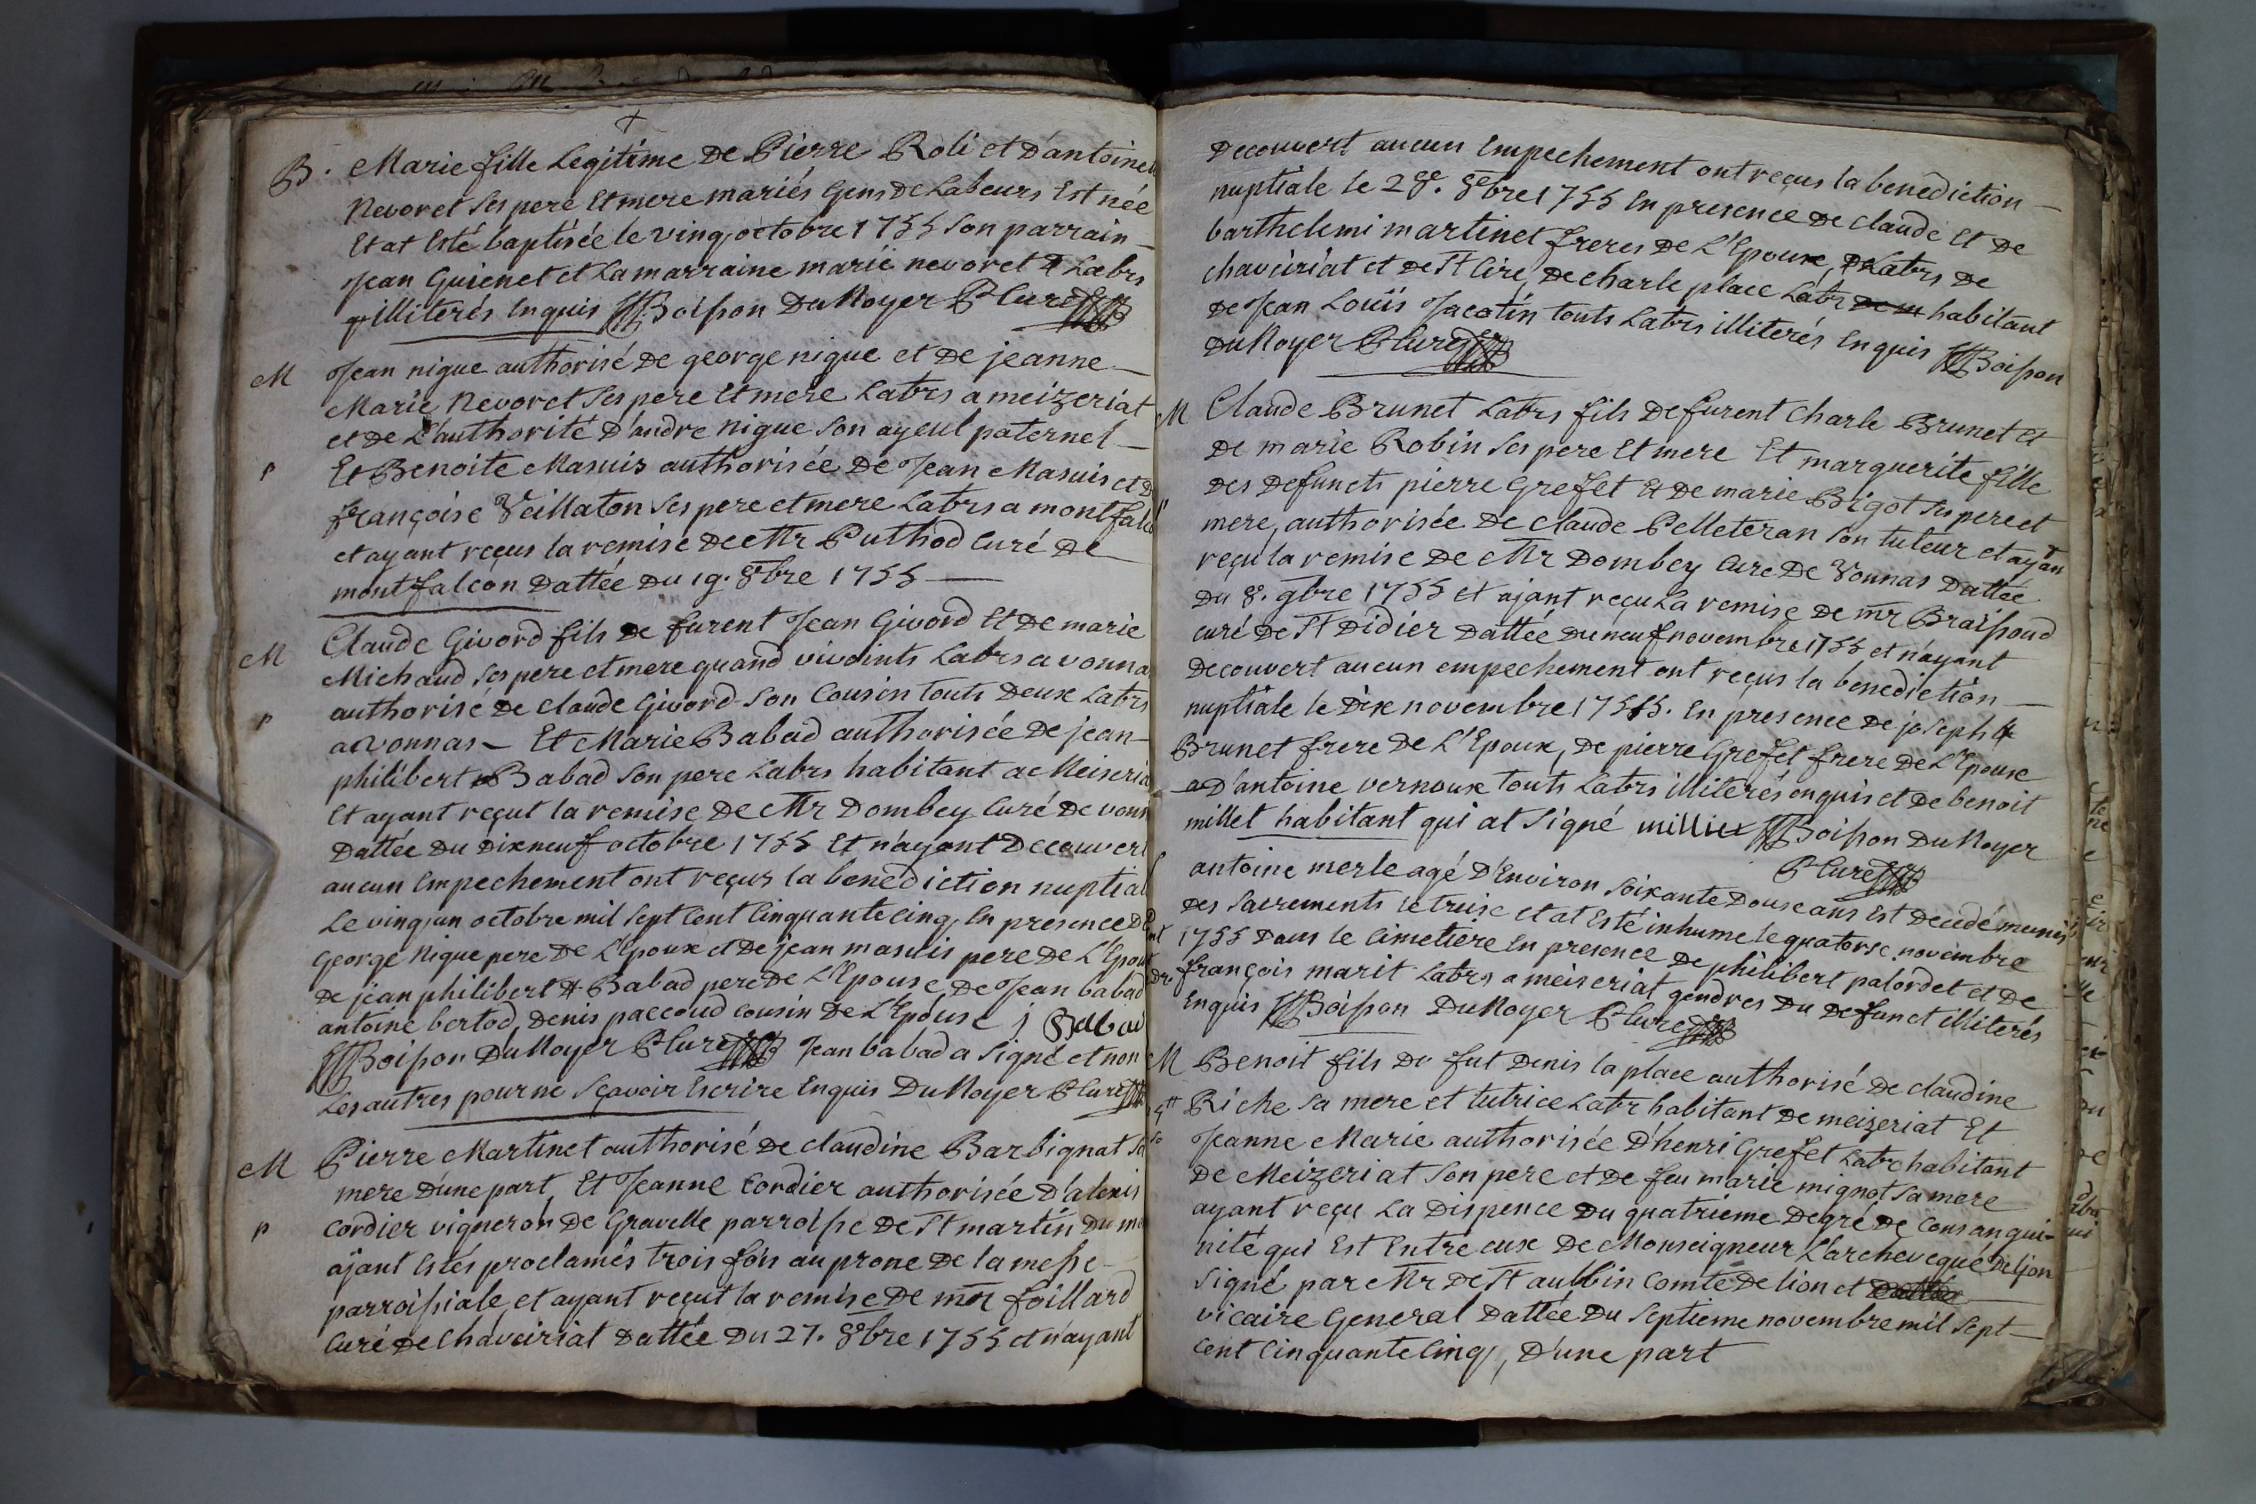 B. Marie fille Legitime De Pierre Roli et D'antoine
Nevoret ses pere Et mere mariés Gens De Labeurs Est née
Et at Esté baptisée le vingt octobre 1755 son parrain
Jean Guienet et La marraine marie nevoret Labrs
illiterés Enquis Boisson DuNoyer P Curé
M Jean nigue authorisé De george nigue et De jeanne
Marie Nevoret ses pere Et mere Labrs a meizeriat
et De L'authorité D'andre nigue son ayeul paternel
p Et Benoite Masuis authorisée De Jean Masuis et D
françoise Veillaton ses pere et mere Labrs a montfalco
et ayant reçus la remise De Mr Puthod Curé De
montfalcon Dattée Du 19. 8bre 1755
M Claude Givord fils De furent Jean Givord Et De marie
Michaud ses pere et mere quand vivoints Labrs a vonnas
authorisé De Claude Givord son Cousin touts Deux Labrs
p a vonnas Et Marie Babad authorisée De jean
philibert Babad son pere Labrs habitant a Meiseria
Et ayant reçut la remise De Mr Dombey Curé De vonn
Dattée Du Dixneuf octobre 1755 Et n'ayant Decouvert
aucun Empechement ont reçus la benediction nuptial
Le vingt un octobre mil sept Cent Cinquante Cinq, En presence De
George Nigue pere De L'Epoux et De jean masuis pere De L'Epous
De jean philibert Babad pere De L'Epouse De Jean babad
antoine bertod, Denis paccoud cousin De L'Epouse j Babad
Boisson DuNoyer P Curé Jean babad a Signé et non
Les autres pour ne Sçavoir Escrire Enquis DuNoyer P Curé
M Pierre Martinet authorisé De claudine Barbignat Sa
mere D'une part, Et Jeanne Cordier authorisée D'alexis
p Cordier vigneron De Gravelle parroisse De St martin Du mo
ajant Estés proclamés trois fois au prone De la messe
parroissiale et ayant reçut la remise De mr foillard
Curé De Chaveiriat Dattée Du 27. 8bre 1755 et n'ayant
Decouvert aucun Empechement ont reçus la benediction
nuptiale le 28. 8bre 1755 En presence De claude Et De
barthelemi martinet freres De L'Epoux, Labrs De
chaveiriat et De St Cire, De charle place Labr habitant
De Jean Louïs Jacotin touts Labrs illiterés Enquis Boisson
DuNoyer P Curé
M Claude Brunet Labrs fils De furent Charle Brunet Et
De marie Robin ses pere Et mere Et marguerite fille
Des Defuncts pierre Grefet Et De marie Bigot ses pere et
mere, authorisée De claude Pelleteran son tuteur et ayan
reçu la remise De Mr Dombey Curé De Vonnas Dattée
Du 8. 9bre 1755 et ajant reçu La remise De mr Braissoud
curé De St Didier Dattée Du neuf novembre 1755 et n'ayant
Decouvert aucun empechement ont reçus la benediction
nuptiale le Dix novembre 1755. En presence De joseph
Brunet frere De L'Epoux, De pierre Grefet frere De L'Epouse
D'antoine vernoux touts Labrs illiterés enquis et De benoit
millet habitant qui at Signé milliet Boisson DuNoyer
P Curé
antoine merle agé D'Environ Soixante Douse ans Est Decedé munis
Des Sacrements le treise et at Esté inhumé le quatorse novembre
1755 Dans le Cimetiere En presence De philibert palordet et De
françois marit Labrs a meiseriat gendres Du Defunct illiterés
Enquis Boisson DuNoyer P Curé
M Benoit fils De fut Denis la place authorisé De claudine
Riche sa mere et tutrice Labr habitant De meizeriat Et
Jeanne Marie authorisée D'henri Grefet Labr habitant
De Meizeriat son pere et De feu marie mignot sa mere
ayant reçu La Dispence Du quatrieme Degré De Consangui-
nité qui Est Entre eux De Monseigneur L'archeveque De lion
Signé par Mr De St aulbin Comte De lion et
vicaire General Dattée Du Septieme novembre mil Sept
Cent Cinquante Cinq, D'une part